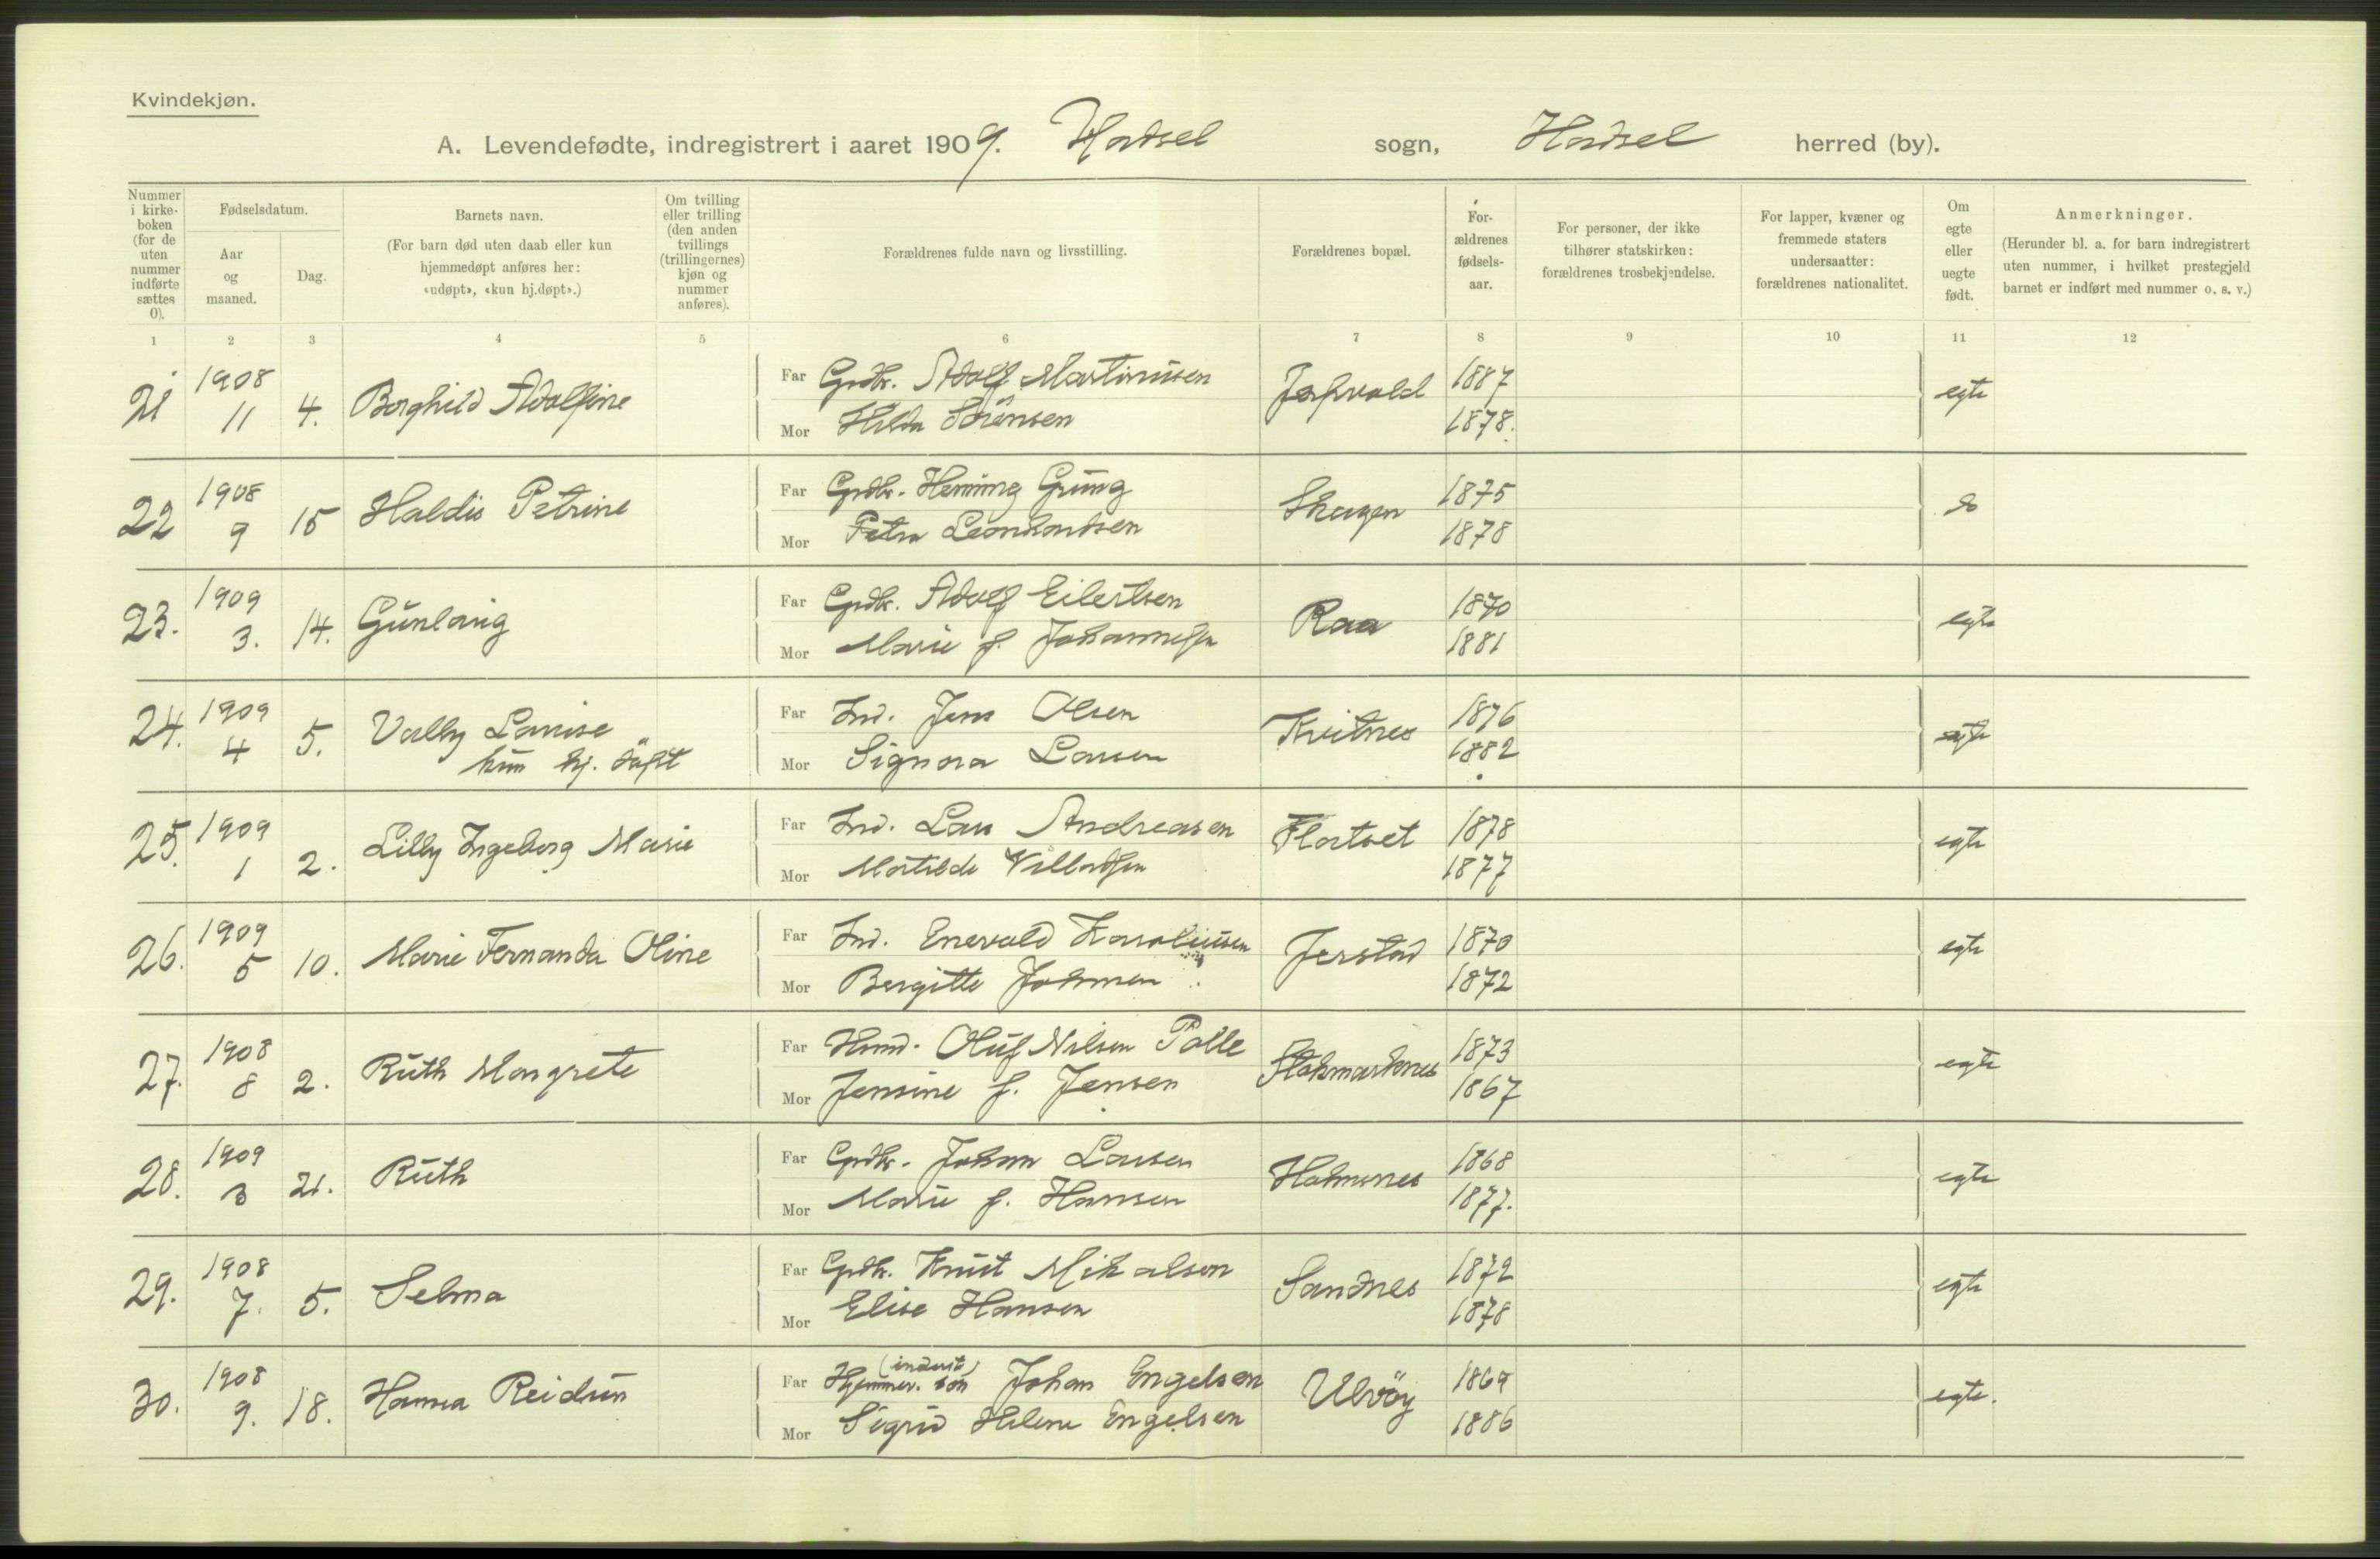 Kvindekjøn.
A. Levendefødte, indregistrert i aaret 1909. Hadsel sogn, Hadsel herred (by).
Nummer i kirke-boken (for de uten nummer indførte sættes 0).
Fødselsdatum.
Aar og maaned.
Dag.
Barnets navn.
(For barn død uten daab eller kun hjemmedøpt anføres her: «udøpt», «kun hj.døpt».)
Om tvilling eller trilling (den anden tvillings (trillingernes) kjøn og nummer anføres).
Forældrenes fulde navn og livsstilling.
Forældrenes bopæl.
For-ældrenes fødsels-aar.
For personer, der ikke tilhører statskirken: forældrenes trosbekjendelse.
For lapper, kvæner og fremmede staters undersaatter: forældrenes nationalitet.
Om egte eller uegte født.
Anmerkninger.
(Herunder bl. a. for barn indregistrert uten nummer, i hvilket prestegjeld barnet er indført med nummer o. s. v.)
1 2 3 4 5 6 7 8 9 10 11 12
21 1908 11 4. Borghild Adolfine Far Grdbr. Adolf Martinusen 1887 egte
Mor Hilda Sörensen 1878.
22 1908 9 15 Haldis Petrine Far Grdbr. Henning Grung Skagen 1875 do
Mor Petra Leonhardsen 1878
23. 1909 3. 14. Gunlaug Far Grdbr. Adolf Eilertsen Raa 1870 egte
Mor Marie f. Johannessen 1881
24. 1909 4 5. Vally Lovise Far Ind. Jens Olsen Kvitnes 1876 egte
kun hj. döpt Mor Signora Larsen 1882
25. 1909 1 2. Lilly Ingeborg Marie Far Ind. Lau Andreasen Flatset 1878 egte
Mor Matilde Villadsen 1877
26. 1909 5 10. Marie Fernanda Oline Far Ind. Enevald Karoliussen Jerstad 1870 egte
Mor Bergitte Johnsen 1872
27. 1908 8 2. Ruth Margrete Far Hand. Oluf Nilsen Polle Stokmarknes 1873 egte
Mor Jensine f. Jensen 1867
28. 1909 3 21. Ruth Far Grdbr. Johan Larsen 1868 egte
Mor Marie f. Hansen 1877.
29. 1908 7. 5. Selma Far Grdbr. Knut Mikalsen Sandnes 1872 egte
Mor Elise Hansen 1878
30. 1908 9. 18. Hanna Reidun Far Hjemmev. sön Johan Engelsen Ulvöy 1869 egte.
Mor Sigrid Helene Engelsen 1886